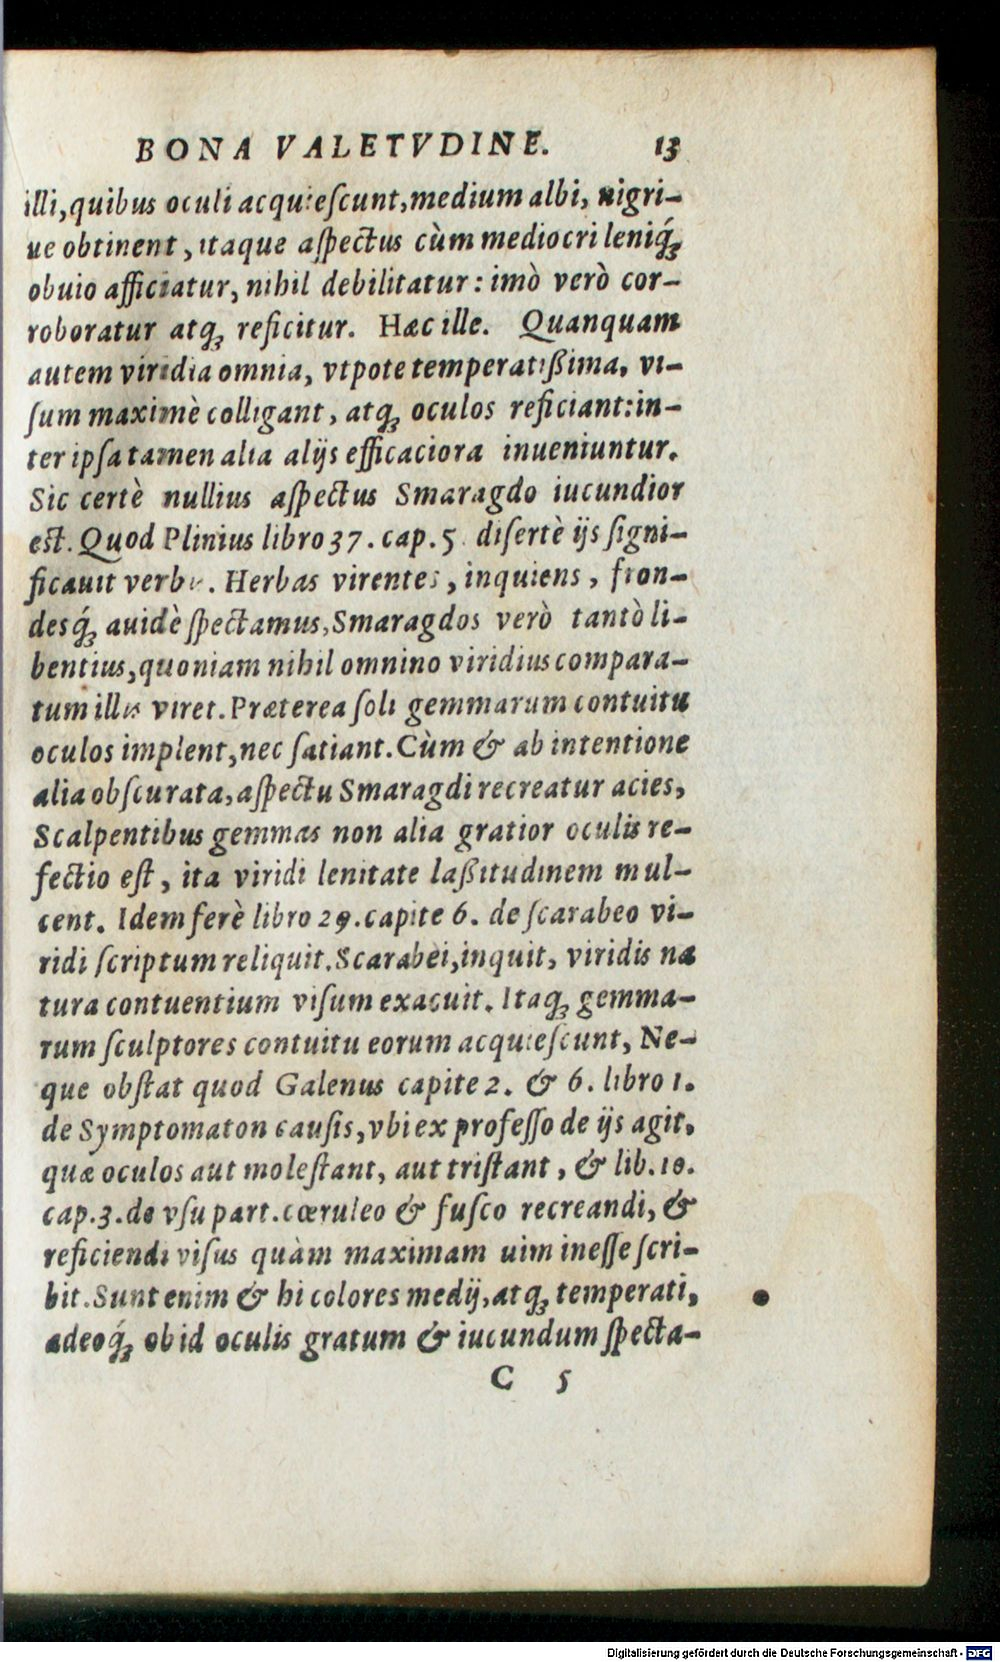 BONA VALETVDINE. 13
illi, quibus oculi acquiescunt, medium albi, nigri-
ue obtinent, itaque aſpectus cùm mediocri leniq́ꝫ
obuio afficiatur, nihil debilitatur: imò verò cor-
roboratur atqꝫ reficitur. Hæc ille. Quanquam
autem viridia omnia, vtpote temperatißima, vi-
ſum maximè colligant, atqꝫ oculos reficiant: in-
ter ipſa tamen alia alijs efficaciora inueniuntur.
Sic certè nullius aſpectus Smaragdo iucundior
eſt. Quod Plinius libro 37. cap. 5. diſertè ijs ſigni-
ficauit verbis. Herbas virentes, inquiens, fron-
desq́ꝫ auidè ſpectamus, Smaragdos verò tantò li-
bentius, quoniam nihil omnino viridius compara-
tum illis viret. Præterea ſoli gemmarum contuitu
oculos implent, nec ſatiant. Cùm & ab intentione
alia obſcurata, aſpectu Smaragdi recreatur acies,
Scalpentibus gemmas non alia gratior oculis re-
fectio eſt, ita viridi lenitate laßitudinem mul-
cent. Idem ferè libro 29. capite 6. de ſcarabeo vi-
ridi ſcriptum reliquit. Scarabèi, inquit, viridis na
tura contuentium viſum exacuit. Itaqꝫ gemma-
rum ſculptores contuitu eorum acquieſcunt, Ne-
que obſtat quod Galenus capite 2. & 6. libro 1.
de Symptomaton cauſis, vbi ex profeſſo de ijs agit,
quæ oculos aut moleſtant, aut triſtant, & lib. 10.
cap. 3. de vſu part. cœruleo & fuſco recreandi, &
reficiendi viſus quàm maximam uim ineſſe ſcri-
bit. Sunt enim & hi colores medij, atqꝫ temperati,
adeoq́ꝫ ob id oculis gratum & iucundum ſpecta-
C 5
Digitalisierung gefördert durch die Deutsche Forschungsgemeinschaft - DFG